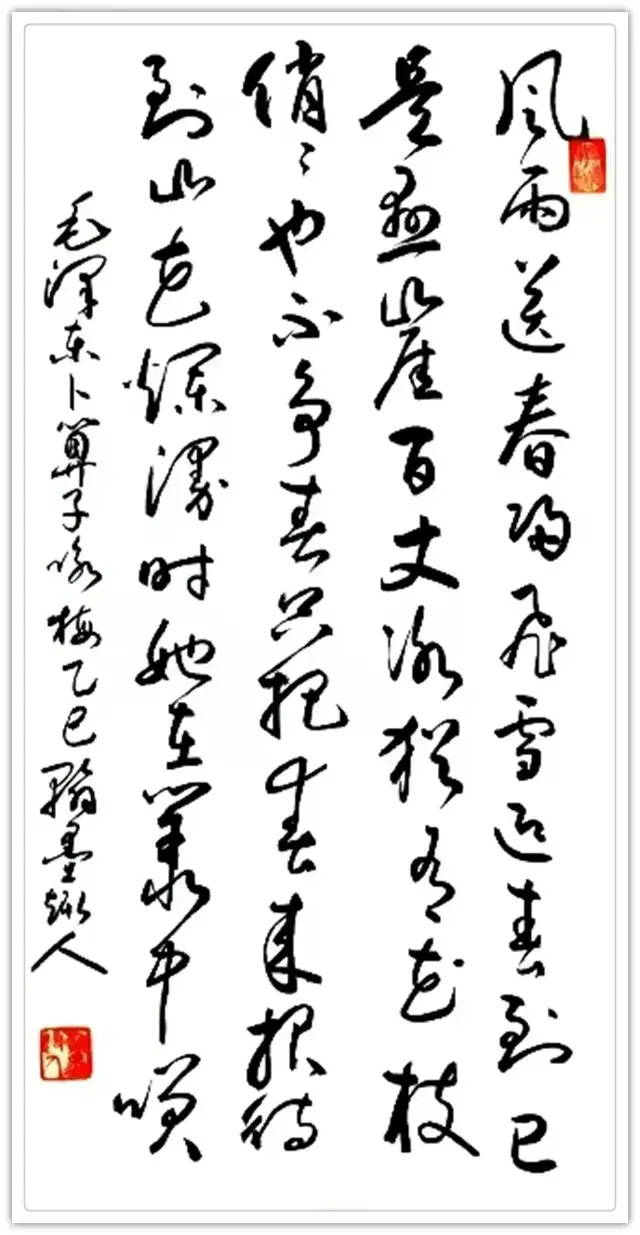 風雨送春歸飛雪迎春到已
是懸崖百丈冰猶有花枝
俏〻也不爭春只把春來報待
到山花爛漫時她在叢中咲
毛澤東卜算子咏梅乙巳翰墨趣人